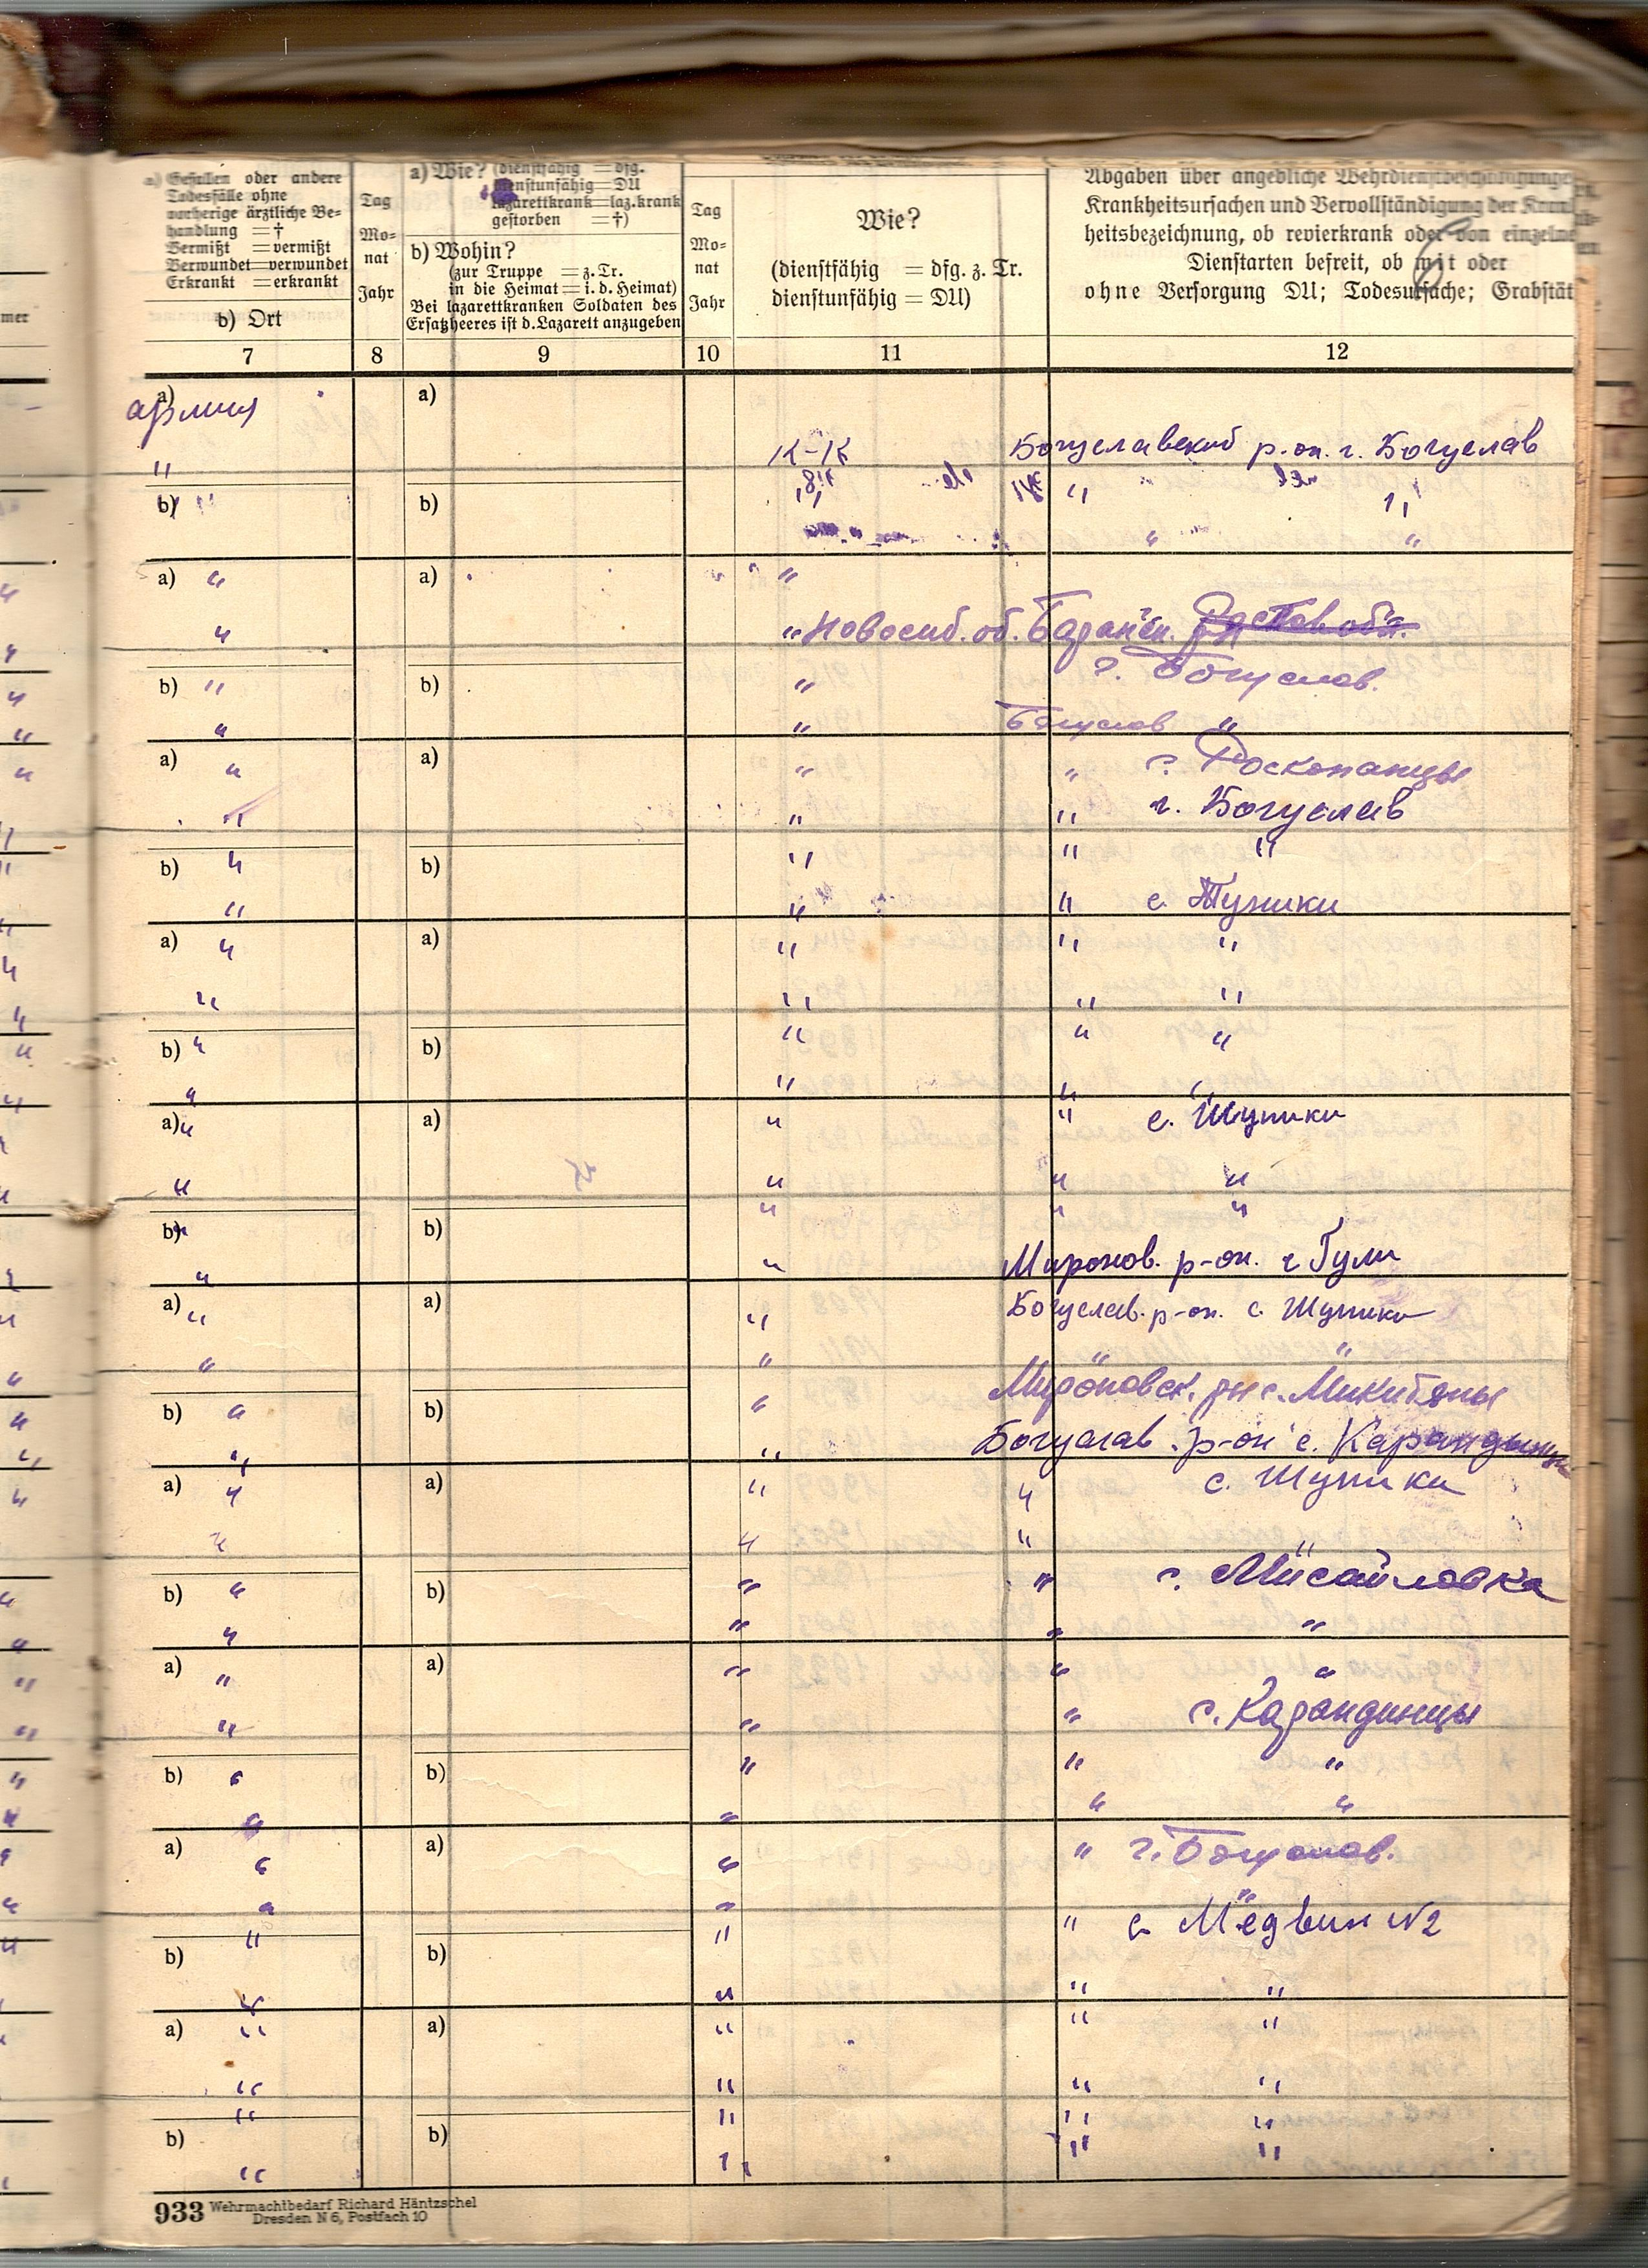 a) Gefallen oder andere
Todesfälle ohne
vorherige ärztliche Be-
handlung = †
Vermißt = vermißt
Verwundet = verwundet
Erkrankt = erkrankt
b) Ort
Tag
Mo-
nat
Jahr
a) Wie? (dienstfähig = dfg.
dienstunfähig = DU
lazarettkrank = laz.krank
gestorben = †)
b) Wohin?
(zur Truppe = z. Tr.
in die Heimat = i. d. Heimat)
Bei lazarettkranken Soldaten des
Ersatzheeres ist d. Lazarett anzugeben
Tag
Mo-
nat
Jahr
Wie?
(dienstfähig = dfg. z. Tr.
dienstunfähig = DU)
Abgaben über angebliche Wehrdienstbeschädigunge
Krankheitsursachen und Vervollständigung der Kran
heitsbezeichnung, ob revierkrank oder von einzelne
Dienstarten befreit, ob mit oder
ohne Versorgung DU; Todesursache; Grabstät
7 8 9 10 11 12
a) армия a)
" К-К Богуславский р-он. г. Богуслав
b) " b) " "
" "
a) " a) "
" " Новосиб. об. Баран
b) " b) " г. Богуслав.
" " Богуслав "
a) " a) " " с. Роскопанцы
" " " г. Богуслав
b) " b) " " "
" " " с. Тупики
a) " a) " " "
" " " "
b) " b) " " "
" " " "
a) " a) " " с. Шупики
" " " "
b) " b) " " "
" " Миронов. р-он. с Тули
a) " a) " Богуслав. р-он. с. Шупики
" " " "
b) " b) " Мироновск. рн с. Микитяны
" " Богуслав. р-он с. Карандинцы
a) " a) " " с. Шупики
" " " "
b) " b) " " с. Мисайловка
" " " "
a) " a) " " "
" " " с. Карандинцы
b) " b) " " "
" " " "
a) " a) " " г. Богуслав.
" " "
b) " b) " " с. Медвин N2
" " " "
a) " a) " " "
" " " "
b) " b) " " "
" " " "
933 Wehrmachtbedarf Richard Häntzschel
Dresden N 6, Postfach 10